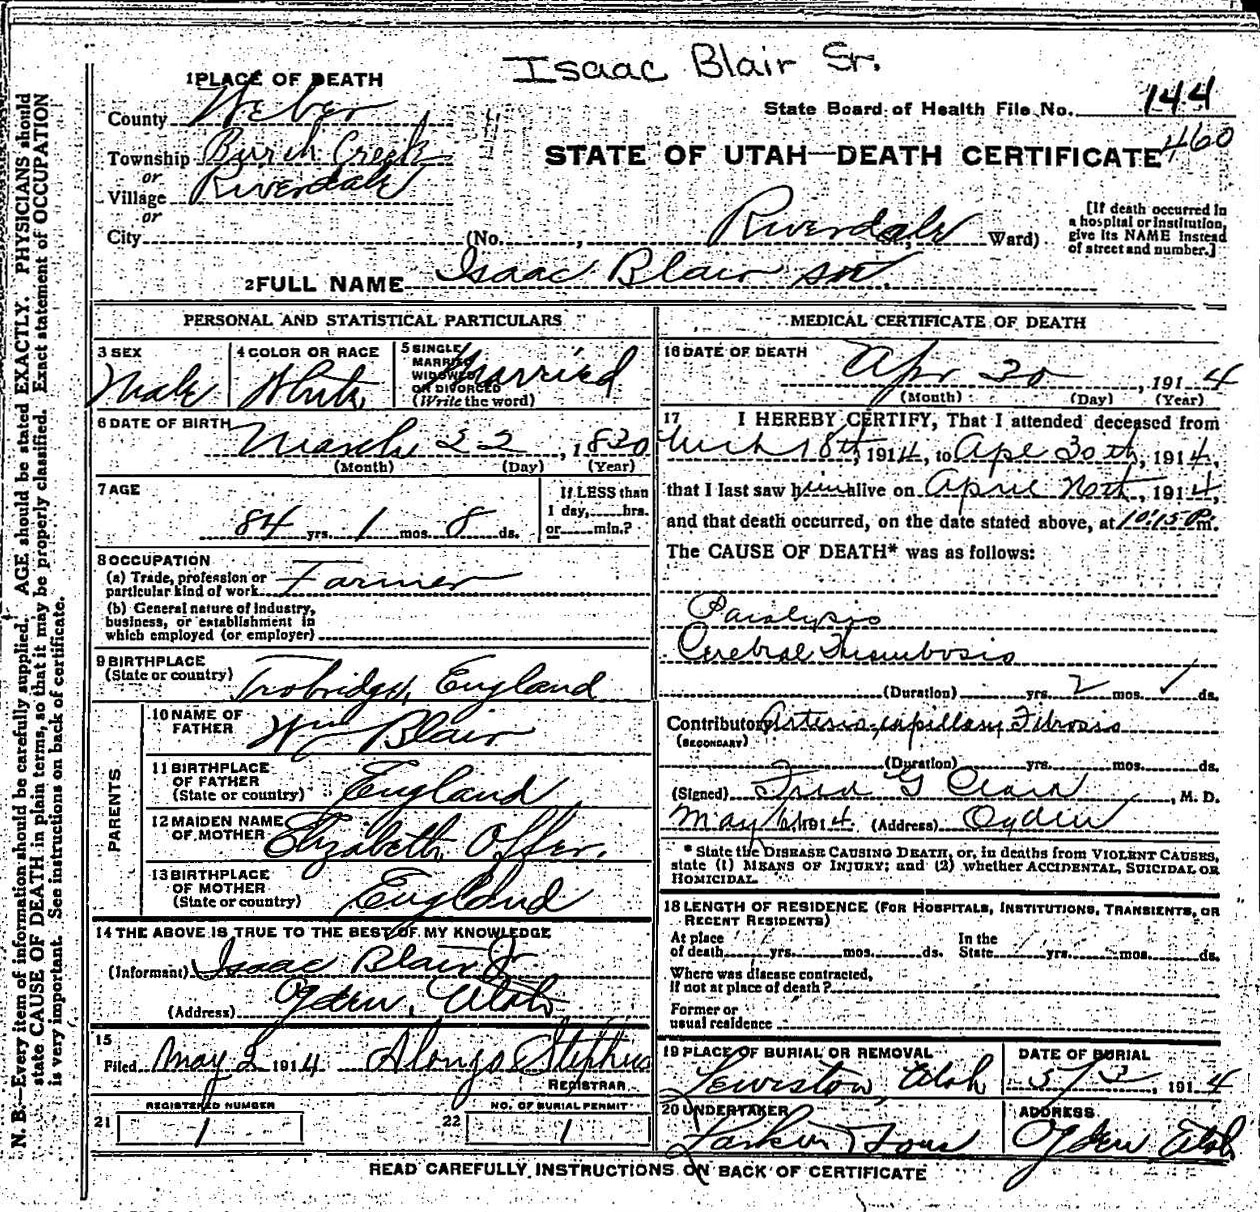 Isaac Blair Sr.
1 PLACE OF DEATH
State Board of Health File No. 144
County Weber
460
STATE OF UTAH—DEATH CERTIFICATE
Township Burch Creek
or
Village Riverdale
or
City (No. , Riverdale Ward)
[If death occurred in a hospital or institution, give its NAME instead of street and number.]
2 FULL NAME Isaac Blair Sr.
PERSONAL AND STATISTICAL PARTICULARS
3 SEX
Male
4 COLOR OR RACE
White
5 SINGLE
MARRIED
WIDOWED
OR DIVORCED
(Write the word)
Married
6 DATE OF BIRTH
March 22, 1830
(Month) (Day) (Year)
7 AGE
84 yrs. 1 mos. 8 ds.
If LESS than
1 day, hrs.
or min.?
8 OCCUPATION
(a) Trade, profession or
particular kind of work Farmer
(b) General nature of industry,
business, or establishment in
which employed (or employer)
9 BIRTHPLACE
(State or country) Trobridge, England
PARENTS
10 NAME OF
FATHER Wm Blair
11 BIRTHPLACE
OF FATHER
(State or country) England
12 MAIDEN NAME
OF MOTHER Elizabeth Offer.
13 BIRTHPLACE
OF MOTHER
(State or country) England
14 THE ABOVE IS TRUE TO THE BEST OF MY KNOWLEDGE
(Informant) Isaac Blair Jr
(Address) Ogden, Utah
15
Filed May 2 1914 Alonzo Stephens
REGISTRAR
REGISTERED NUMBER
21 1
NO. OF BURIAL PERMIT
22 1
MEDICAL CERTIFICATE OF DEATH
16 DATE OF DEATH
Apr 30, 1914
(Month) (Day) (Year)
17 I HEREBY CERTIFY, That I attended deceased from
Mch 18th, 1914, to Apr 30th, 1914,
that I last saw him alive on April, 1914,
and that death occurred, on the date stated above, at 10:15 P.m.
The CAUSE OF DEATH* was as follows:
Paralysis
Cerebral Thrombosis
(Duration) yrs. 2 mos. ds.
Contributory Arterio-capillary Fibrosis
(SECONDARY)
(Duration) yrs. mos. ds.
(Signed) Fred G Clark, M. D.
May 1914 (Address) Ogden
* State the DISEASE CAUSING DEATH, or, in deaths from VIOLENT CAUSES,
state (1) MEANS OF INJURY; and (2) whether ACCIDENTAL, SUICIDAL OR
HOMICIDAL.
18 LENGTH OF RESIDENCE (FOR HOSPITALS, INSTITUTIONS, TRANSIENTS, OR
RECENT RESIDENTS)
At place In the
of death yrs. mos. ds. State yrs. mos. ds.
Where was disease contracted,
if not at place of death?
Former or
usual residence
19 PLACE OF BURIAL OR REMOVAL
Lewiston, Utah
DATE OF BURIAL
5/3, 1914
20 UNDERTAKER
Larkin & Sons
ADDRESS
Ogden Utah
READ CAREFULLY INSTRUCTIONS ON BACK OF CERTIFICATE
N. B.—Every item of information should be carefully supplied. AGE should be stated EXACTLY. PHYSICIANS should
state CAUSE OF DEATH in plain terms, so that it may be properly classified. Exact statement of OCCUPATION
is very important. See instructions on back of certificate.